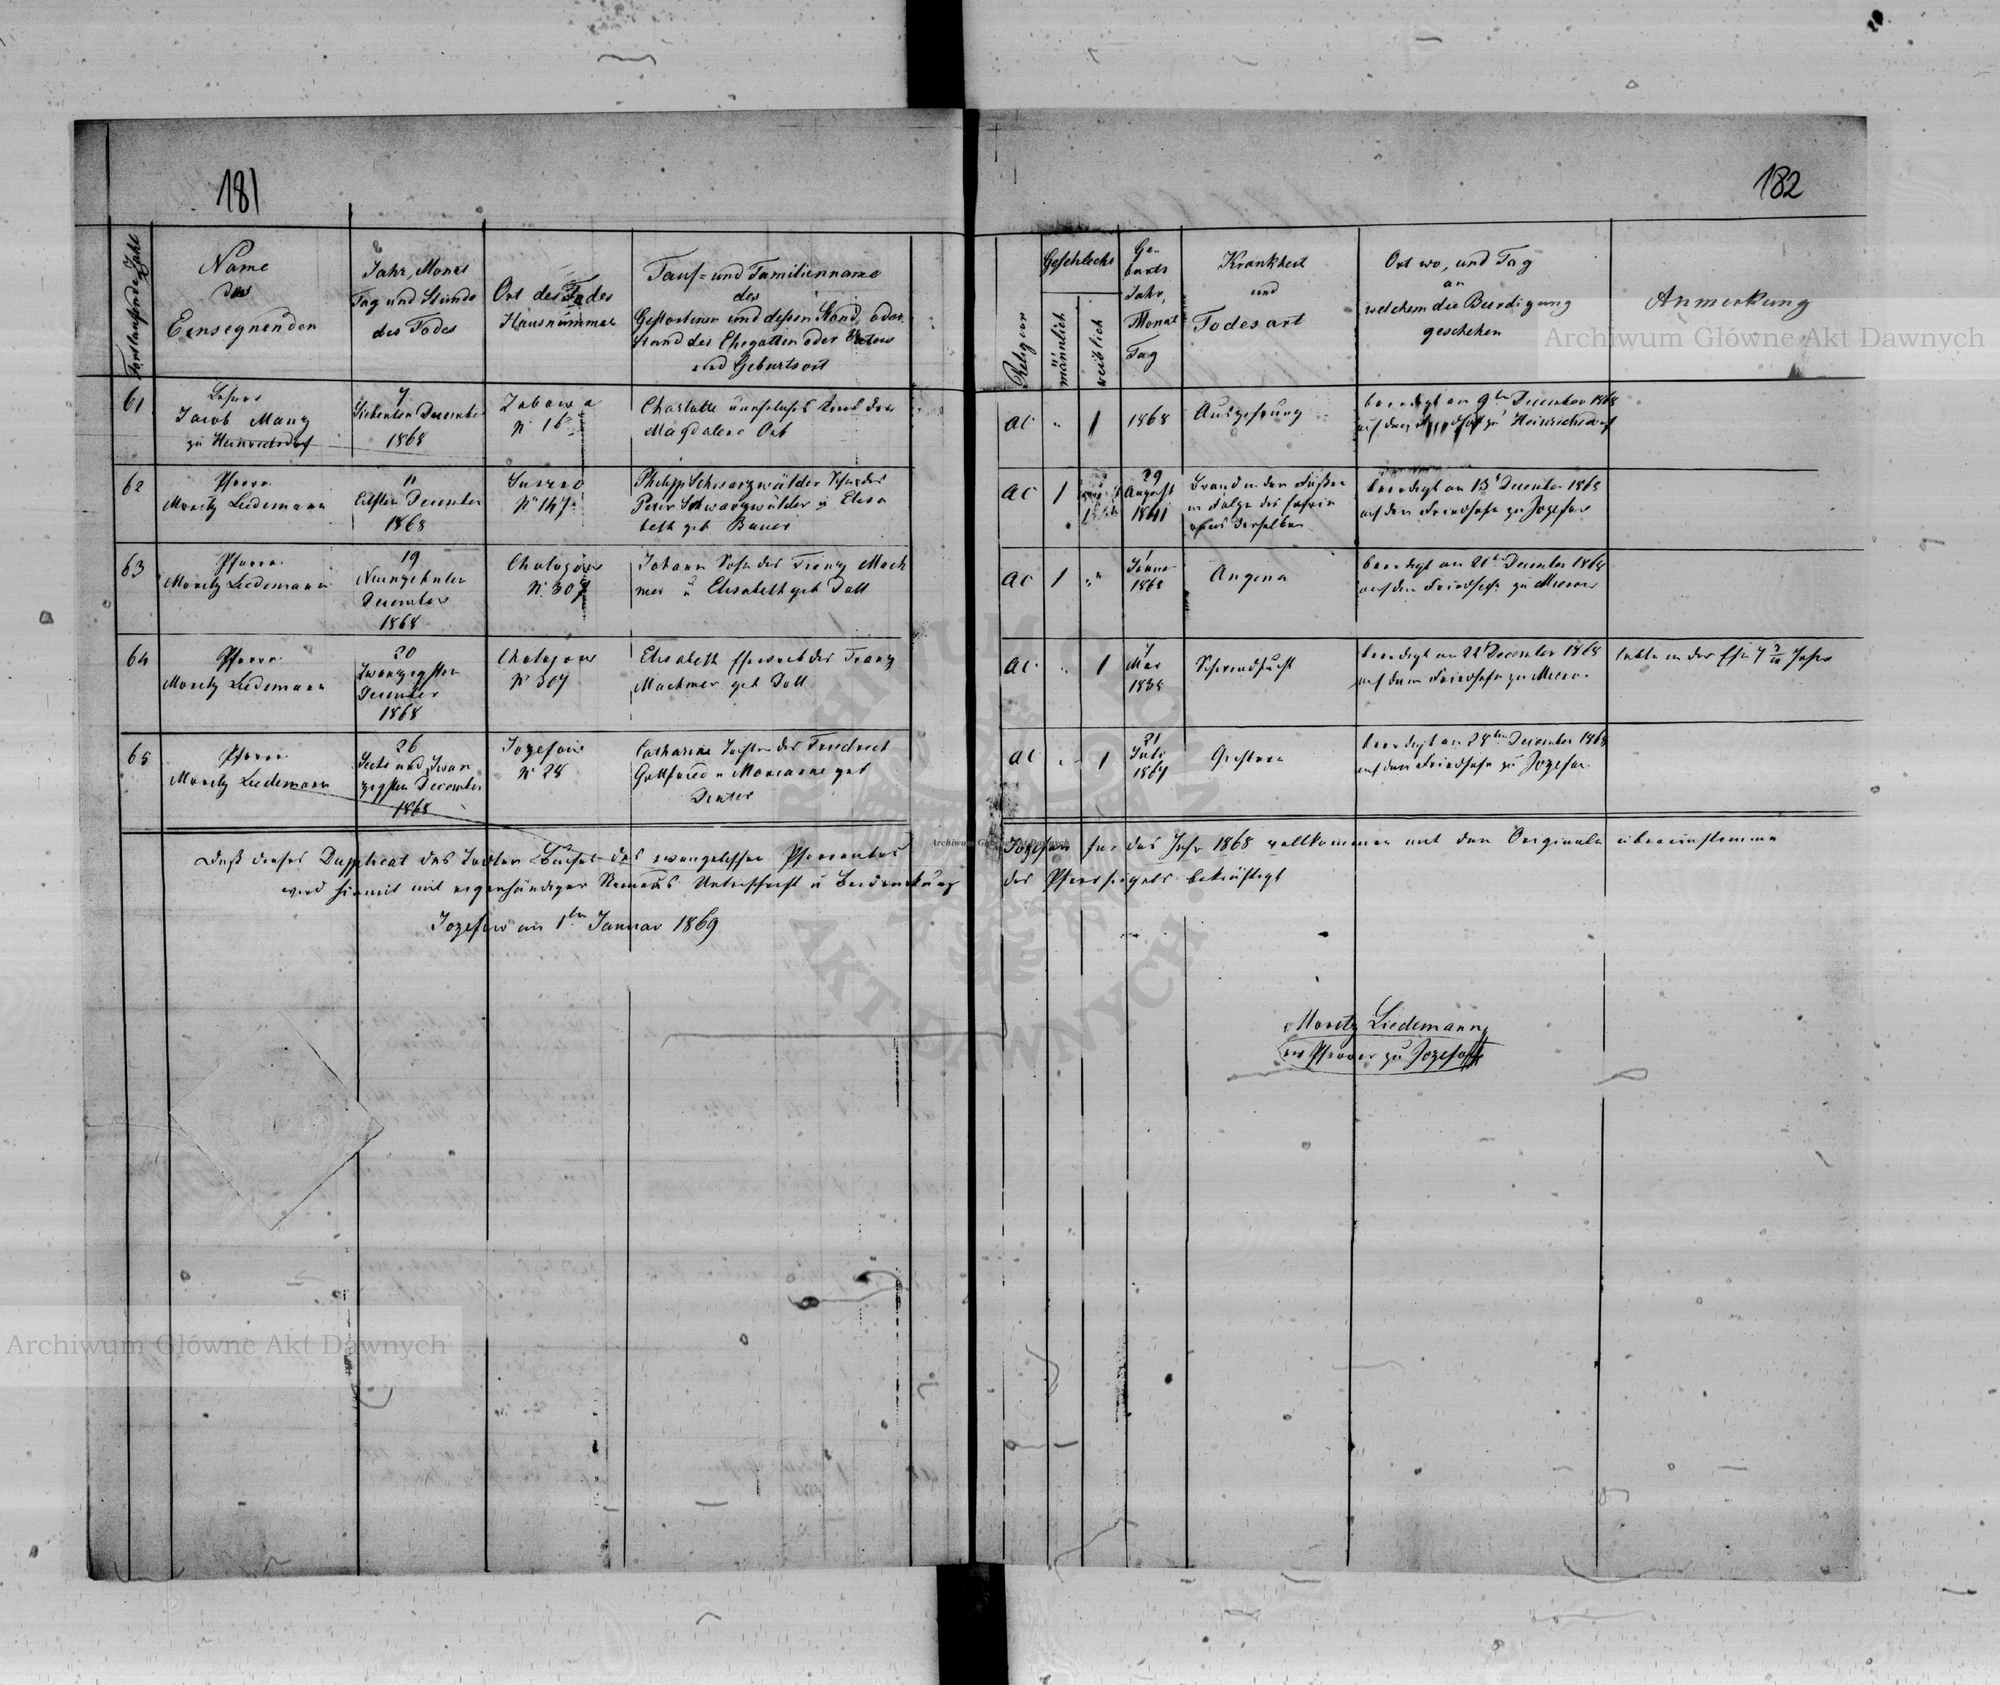 181
182
Fortlaufende Zahl
Name
des
Einsegnenden
Jahr, Monat
Tag und Stunde
des Todes
Ort des Todes
Hausnummer
Tauf- und Familienname
des
Gestorbenen und dessen Stand, oder
Stand des Ehegatten oder Vaters
und Geburtsort
Religion
Geschlecht
männlich
weiblich
Ge-
burts
Jahr,
Monat
Tag
Krankheit
und
Todesart
Ort wo, und Tag
an
welchem die Beerdigung
geschehen
Anmerkung
61
Lehrer
Jacob Manz
zu Heinrichsdorf
7
Siebenten December
1868
Zabawa
N. 16
Charlotte uneheliches Kind der
Magdalena Ort
AC
"
1
1868
Auszehrung
beerdigt am 9ten December 1868
auf dem Friedhof zu Heinrichsdorf
62
Pfarrer
Moritz Liedemann
11
Eilften December
1868
Suszno
N. 147
Philipp Schwarzwälder Sohn des
Peter Schwarzwälder u Elisa
beth geb Bauer
AC
1
29
August
1841
Brand in den Füßen
in Folge des
derselben
beerdigt am 13t December 1868
auf dem Friedhofe zu Jozefow
63
Pfarrer
Moritz Liedemann
19
Neunzehnten
December
1868
Chołojow
N. 307
Johann Sohn des Franz Mach
mer u Elisabeth geb Doll
AC
1
"
1
Januar
1868
Angina
beerdigt am 21t December 1868
auf dem Friedhofe zu Mierow
64
Pfarrer
Moritz Liedemann
20
Zwanzigsten
December
1868
Chołojow
N. 307
Elisabeth Eheweib des Franz
Machmer geb Doll
AC
"
1
7
Mai
1838
Schwindsucht
beerdigt am 22t December 1868
auf dem Friedhofe zu Mierow
lebte in der Ehe 7 Jahre
65
Pfarrer
Moritz Liedemann
26
Sechs und Zwan
zigsten December
1868
Jozefow
N. 28
Catharina Tochter des Friedrich
Gottfried u Marianne geb
AC
"
1
21
Juli
1867
beerdigt am 28ten December 1868
auf dem Friedhofe zu Jozefow
Daß dieses Dupplicat des Todten Buches des evangelischen Pfarramtes Jozefow für das Jahr 1868 vollkommen mit dem Originale übereinstimme
wird hiemit mit eigenhändiger Namens Unterschrift u Beidrückung des Pfarrsiegels bekräftigt
Jozefow am 1ten Januar 1869
Moritz Liedemann
ev Pfarrer zu Jozefow
Archiwum Główne Akt Dawnych
Archiwum Główne Akt Dawnych
Archiwum Główne Akt Dawnych
ARCHIWUM GŁÓWNE
AKT DAWNYCH